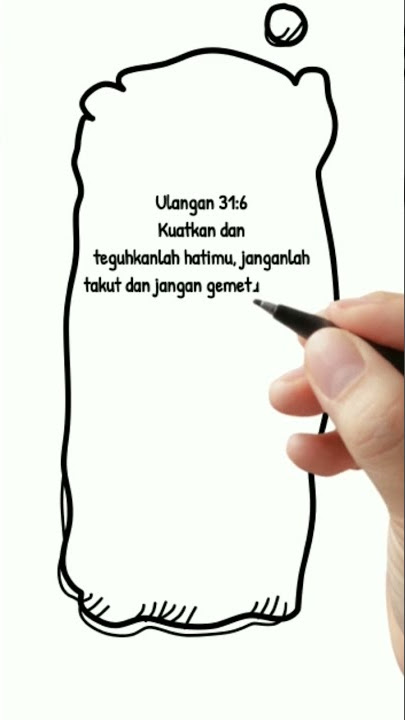 Ulangan 31:6
Kuatkan dan
teguhkanlah hatimu, janganlah
takut dan jangan gemet